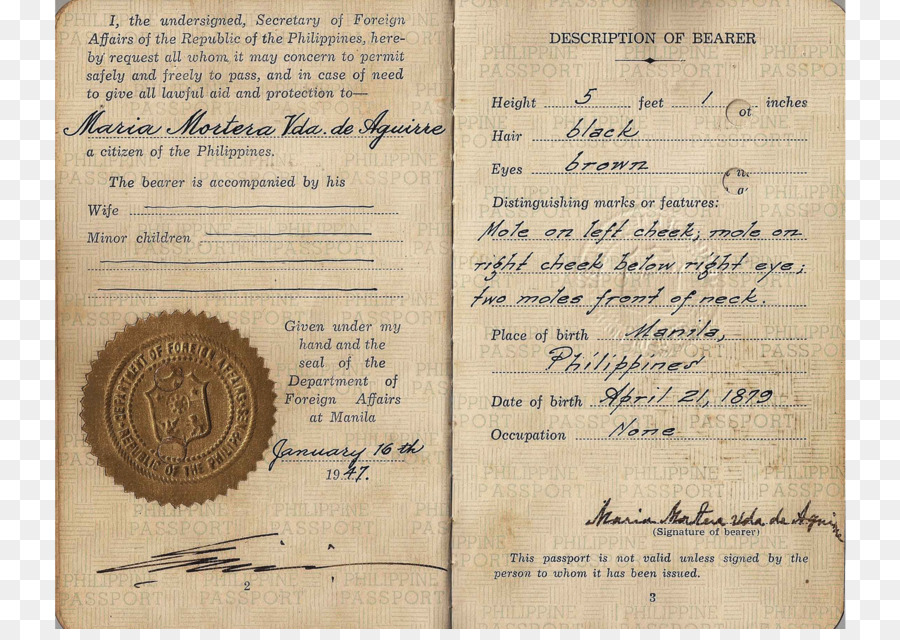 I, the undersigned, Secretary of Foreign
Affairs of the Republic of the Philippines, here-
by request all whom it may concern to permit
safely and freely to pass, and in case of need
to give all lawful aid and protection to—
Maria Mortera Vda. de Aguirre
a citizen of the Philippines.
The bearer is accompanied by his
Wife
Minor children
DEPARTMENT OF FOREIGN AFFAIRS
REPUBLIC OF THE PHILIPPINES
Given under my
hand and the
seal of the
Department of
Foreign Affairs
at Manila
January 16th
1947.
2
DESCRIPTION OF BEARER
Height 5 feet 1 inches
Hair black
Eyes brown
Distinguishing marks or features:
Mole on left cheek; mole on
right cheek below right eye;
two moles front of neck.
Place of birth Manila,
Philippines
Date of birth April 21, 1879
Occupation None
Maria Mortera Vda de Aguirre
(Signature of bearer)
This passport is not valid unless signed by the
person to whom it has been issued.
3